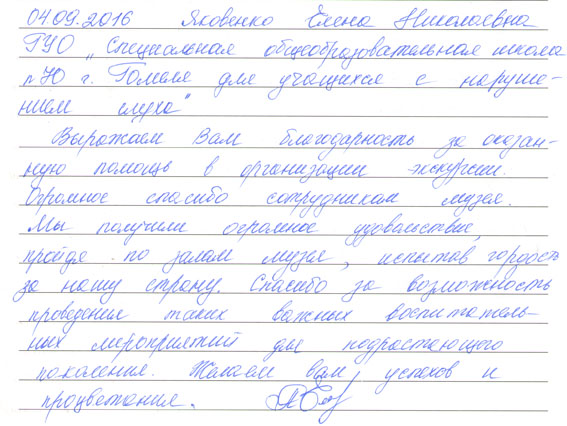 04.09.2016 Яковенко Елена Николаевна
ГУО „Специальная общеобразовательная школа
№70 г. Гомеля для учащихся с наруше-
нием слуха"
Выражаем Вам благодарность за оказан-
ную помощь в организации экскурсии.
Огромное спасибо сотрудникам музея.
Мы получили огромное удовольствие,
пройдя по залам музея, испытав гордость
за нашу страну. Спасибо за возможность
проведения таких важных воспитатель-
ных мероприятий для подрастающего
поколения. Желаем вам успехов и
процветания.